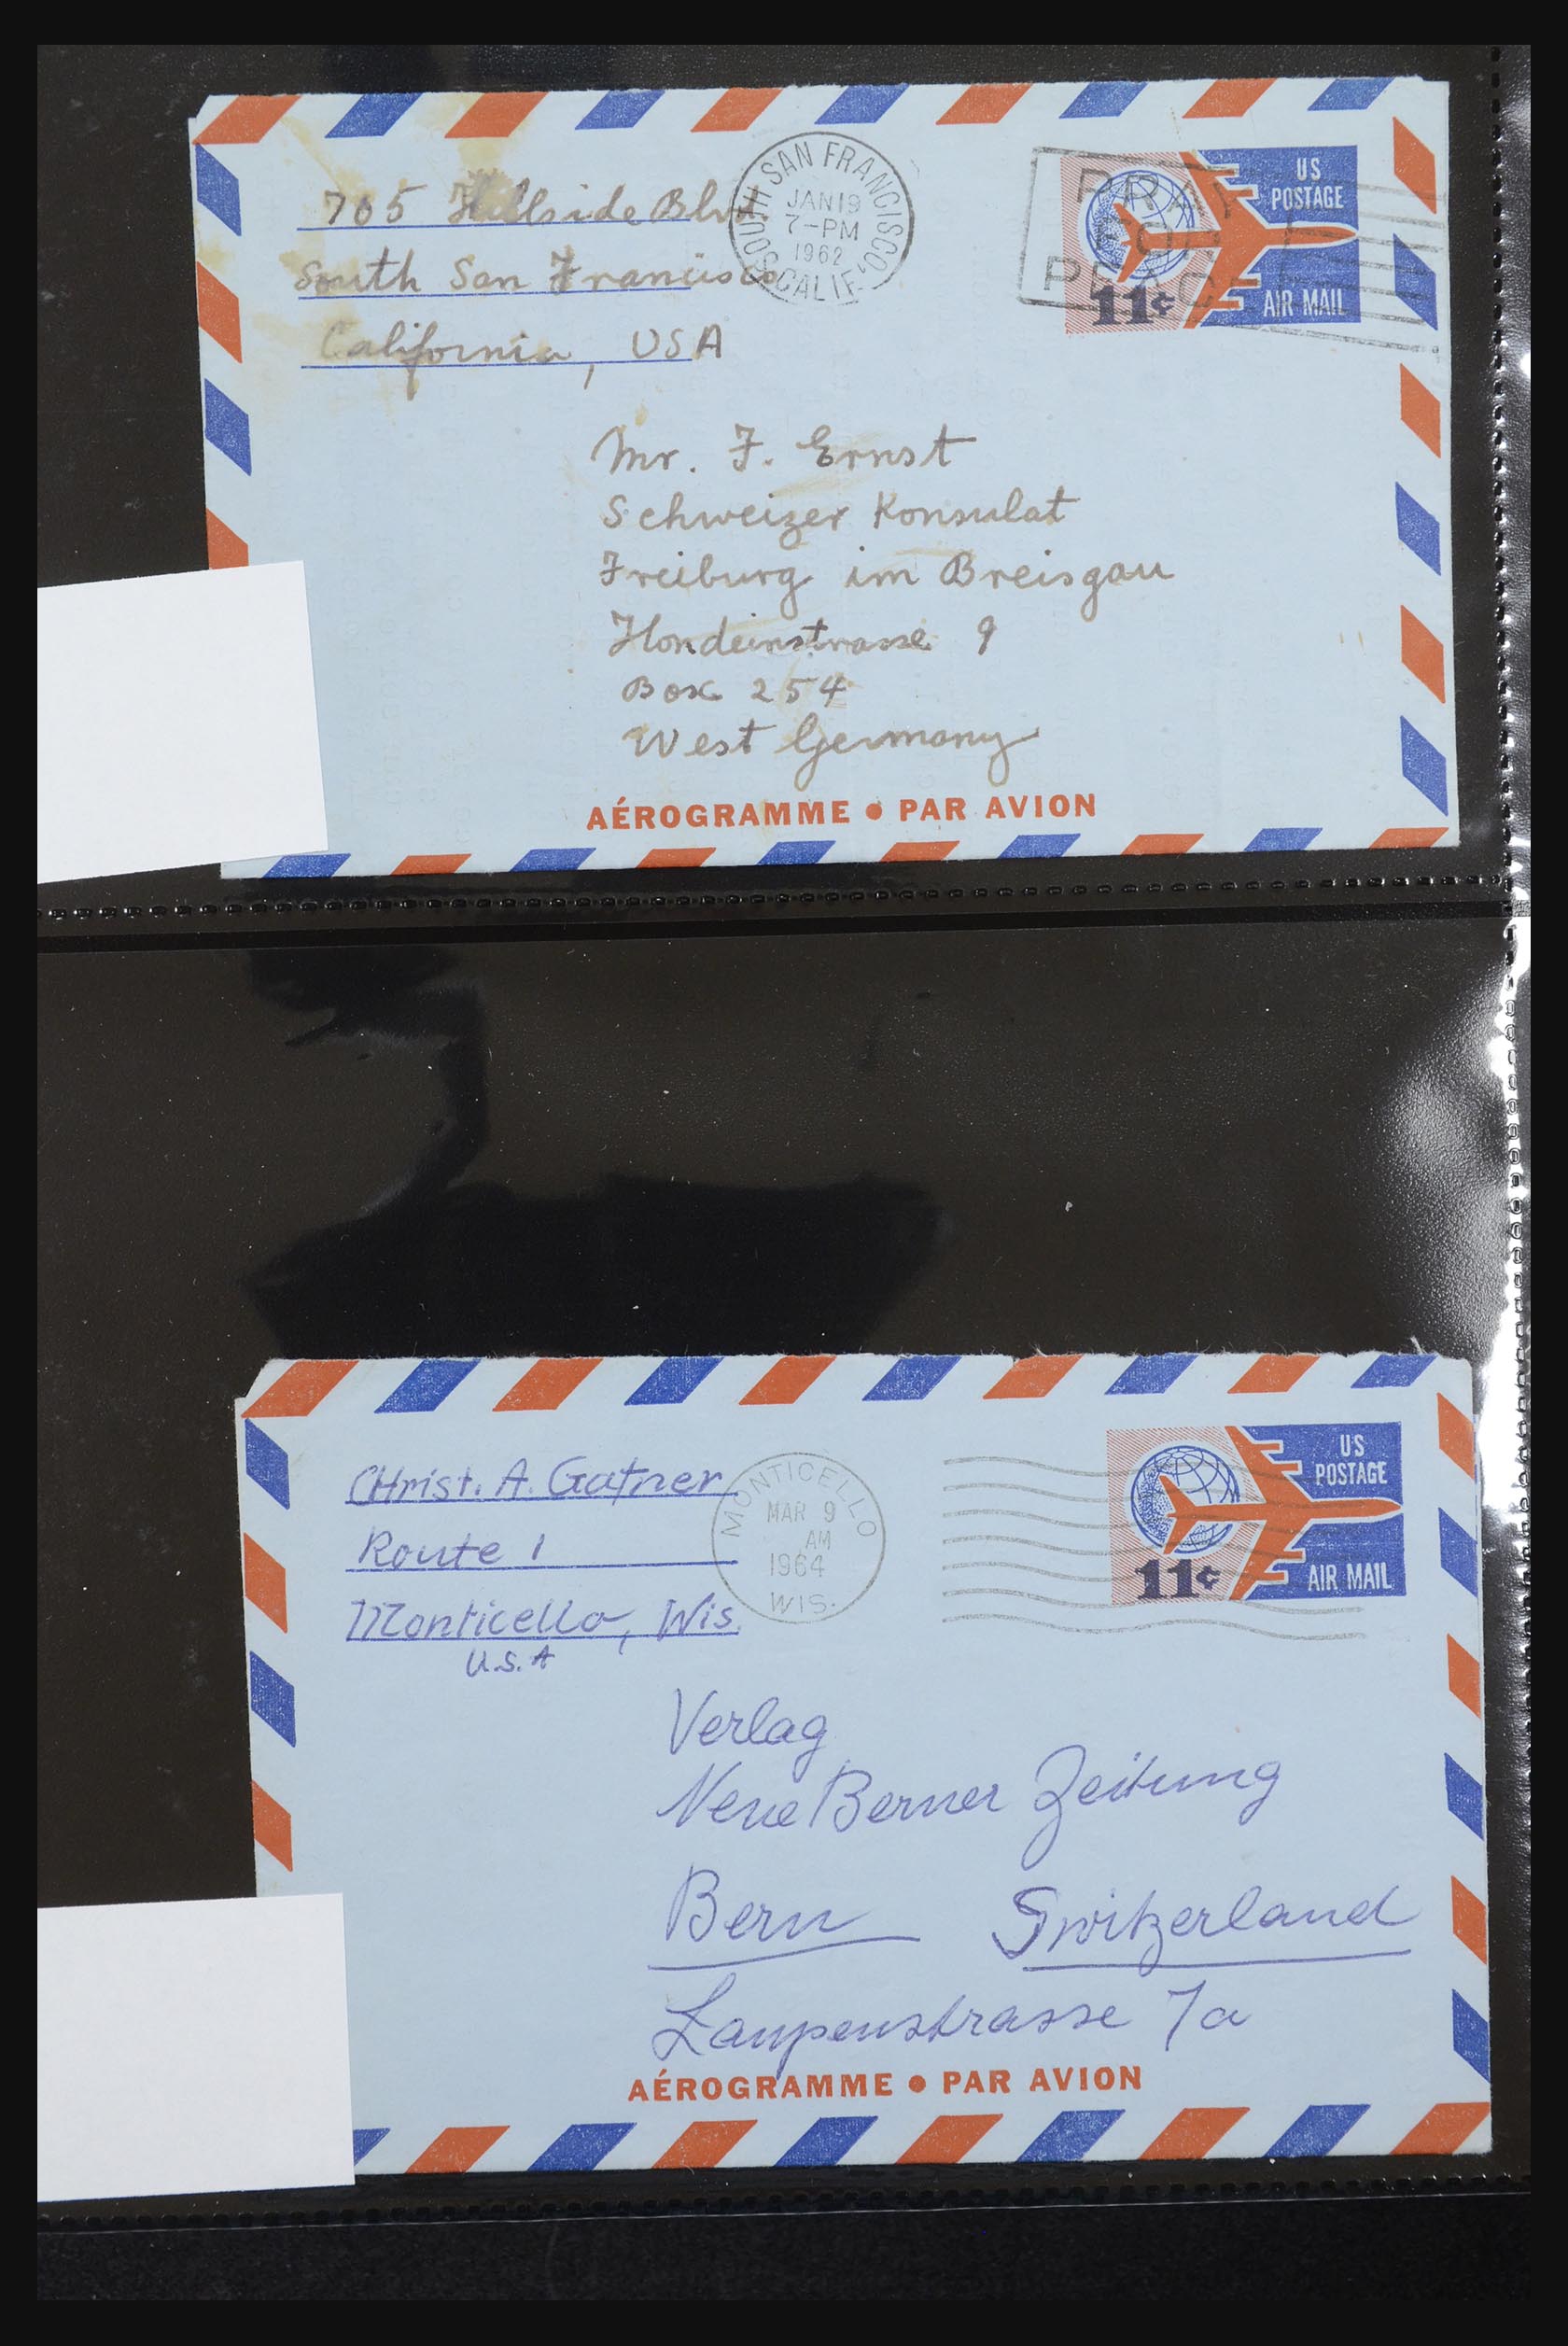 705 Hillside Blvd
South San Francisco
California, USA
SOUTH SAN FRANCISCO, CALIF.
JAN 19
7-PM
1962
PRAY
FOR
PEACE
US
POSTAGE
11¢
AIR MAIL
Mr. F. Ernst
Schweizer Konsulat
Freiburg im Breisgau
9
Box 254
West Germany
AÉROGRAMME • PAR AVION
CHrist. A. Gatner
Route 1
Monticello, Wis.
U.S.A
MONTICELLO
MAR 9
AM
1964
WIS.
US
POSTAGE
11¢
AIR MAIL
Verlag
Neue Berner Zeitung
Bern Switzerland
Laupenstrasse 7a
AÉROGRAMME • PAR AVION